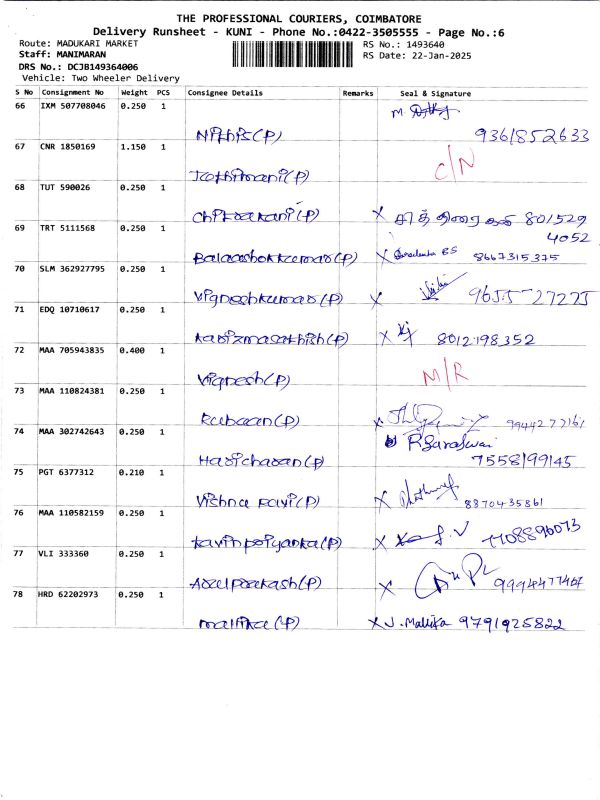 THE PROFESSIONAL COURIERS, COIMBATORE
Delivery Runsheet - KUNI - Phone No.:0422-3505555 - Page No.:6
Route: MADUKARI MARKET RS No.: 1493640
Staff: MANIMARAN RS Date: 22-Jan-2025
DRS No.: DCJB149364006
Vehicle: Two Wheeler Delivery
S No Consignment No Weight PCS Consignee Details Remarks Seal & Signature
66 IXM 507708046 0.250 1
Nithis(P) 9361852633
67 CNR 1850169 1.150 1 C/N
Jothimani(P)
68 TUT 590026 0.250 1
Chitrakani(P) X சித்திரைகனி 801529
4052
69 TRT 5111568 0.250 1
Balaashokkumar(P) X 8667315375
70 SLM 362927795 0.250 1
Vigneshkumar(P) X 9655-27275
71 EDQ 10710617 0.250 1
X 8012198352
72 MAA 705943835 0.400 1 M/R
Vignesh(P)
73 MAA 110824381 0.250 1
Rubaan(P) X 9944277161
74 MAA 302742643 0.250 1 R Saraswai
Haricharan(P) 7558199145
75 PGT 6377312 0.210 1
Vishnu Kavi(P) X 8870435861
76 MAA 110582159 0.250 1
Kavinpriyanka(P) X 7708896073
77 VLI 333360 0.250 1
Arulprakash(P) X 9994477467
78 HRD 62202973 0.250 1
Mallika(P) X J. Mallika 9791925822